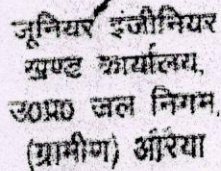 जूनियर इंजीनियर
खण्ड कार्यालय,
उ०प्र० जल निगम,
(ग्रामीण) औरैया